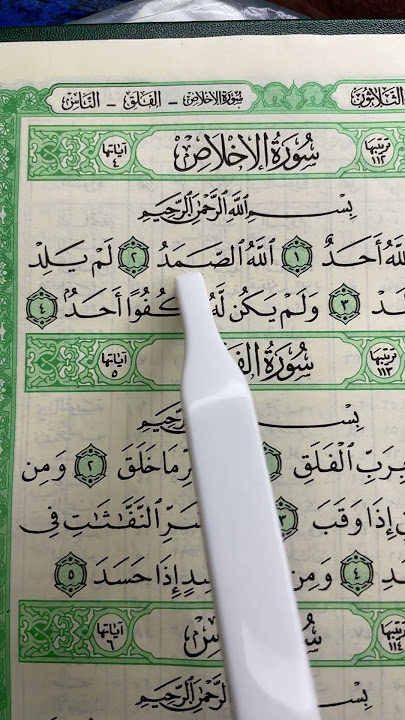 الثلاثون سورة الإخلاص - الفلق - الناس
ترتيبها ١١٢ سُورَةُ الإِخْلَاصِ آياتها ٤
بِسْمِ ٱللَّهِ ٱلرَّحْمَٰنِ ٱلرَّحِيمِ
ٱللَّهُ أَحَدٌ ١ ٱللَّهُ ٱلصَّمَدُ ٢ لَمْ يَلِدْ
٣ وَلَمْ يَكُن لَّهُ كُفُوًا أَحَدٌ ٤
ترتيبها ١١٣ سُورَةُ آياتها ٥
بِسْمِ
بِرَبِّ ٱلْفَلَقِ مَا خَلَقَ ٢ وَمِن
إِذَا وَقَبَ ٣ ٱلنَّفَّٰثَٰتِ فِى
٤ وَمِن إِذَا حَسَدَ ٥
ترتيبها ١١٤ آياتها ٦
بِسْمِ ٱللَّهِ ٱلرَّحِيمِ